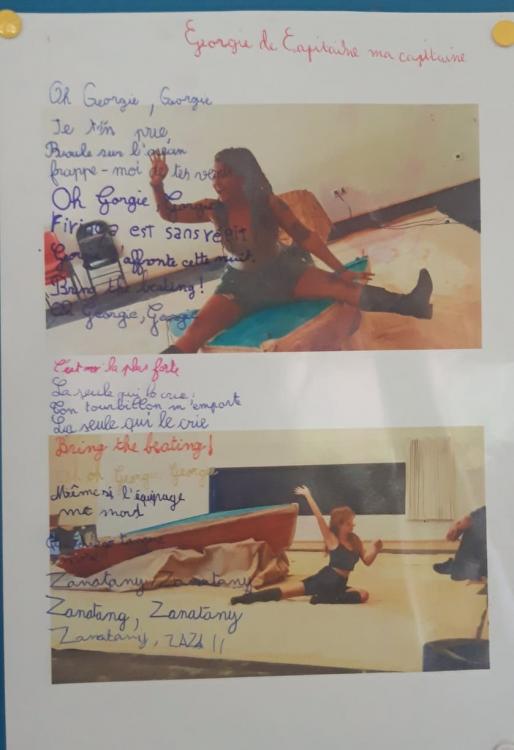 Georgie de Capitaine ma capitaine
Oh Georgie, Georgie
Je t'en prie,
Boule sur l'océan
frappe-moi de tes vents
Oh Gorgie Georgie
est sans répit
affronte cette nuit.
Bring the beating!
Oh Georgie, Georgie
C'est moi la plus forte
La seule qui le crie
Ton tourbillon m'emporte
La seule qui le crie
Bring the beating!
oh Georgie Georgie
Même si l'équipage
me mord
tangue
Zanatany Zanatany
Zanatang, Zanatany
Zanatany, ZAZA !!